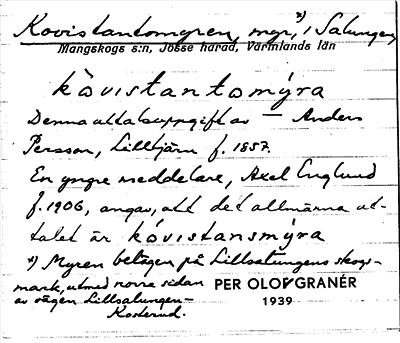 Kovistantomyren, myr, x) i Salungen,
Mangskogs s:n, Jösse härad, Värmlands län
kòvistantomýra
Denna uttalsuppgift av — Anders
Persson, Lilltjärn f. 1857.
En yngre meddelare, Axel Englund
f. 1906, angav, att det allmänna ut-
talet är kòvistansmýra
x) Myren belägen på Lillsalungens skogs-
mark, utmed norra sidan
av vägen Lillsalungen–
Kosterud.
PER OLOV GRANÉR
1939